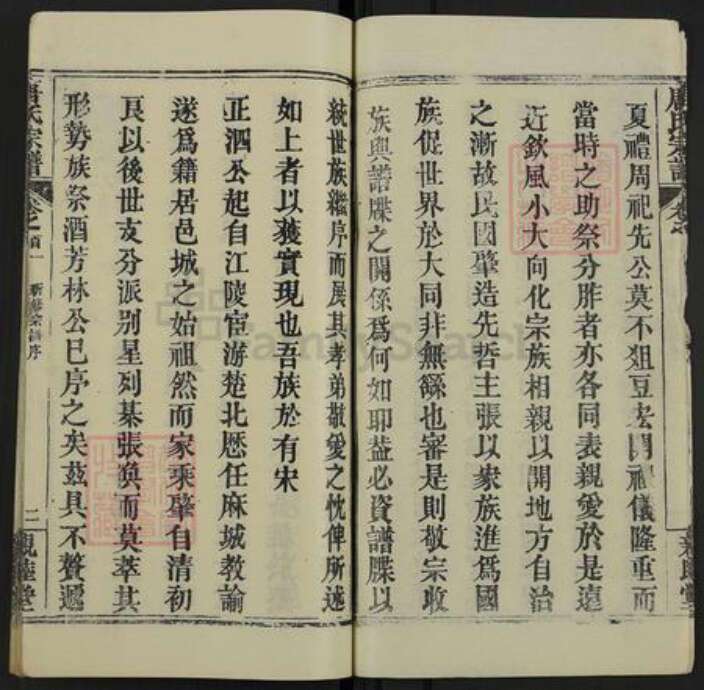 夏禮周祀先公莫不俎豆宏開祀儀隆重而
當時之助祭分胙者亦各同表親愛於是遠
近欽風小大向化宗族相親以開地方自治
之漸故民國肇造先哲主張以家族進爲國
族促世界於大同非無繇也審是則敬宗收
族與譜牒之關係爲何如耶益必資譜牒以
統世族繼序而展其孝弟敬愛之忱俾所述
如上者以獲實現也吾族於有宋
正泗公起自江陵宦游楚北歷任麻城教諭
遂爲籍居邑城之始祖然而家乘肇自清初
良以後世支分派别星列棊張渙而莫萃其
形勢族祭酒芳林公已序之矣茲具不贅遞
唐氏宗譜
卷之首一
新修宗譜序
二
親睦堂